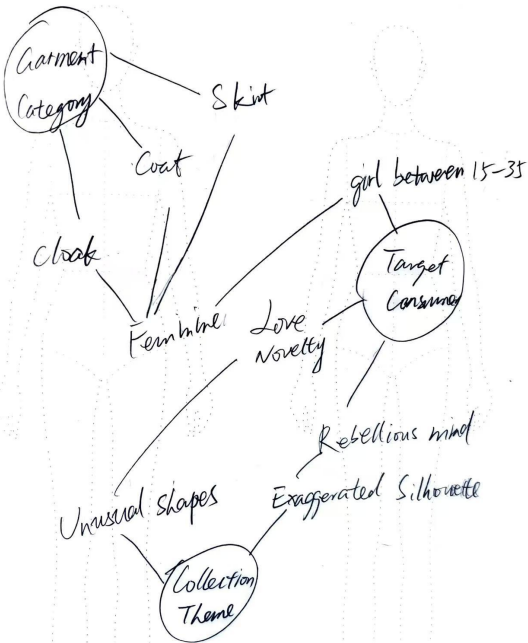 Garment
Category
Skirt
Coat
girl between 15-35
Cloak
Target
Consumer
Feminine
Love
Novelty
Rebellious mind
Exaggerated Silhouette
Unusual shapes
Collection
Theme